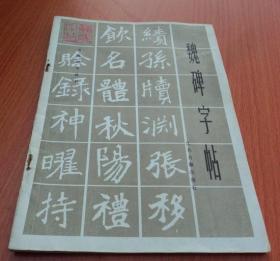 魏碑字帖
績孫牘淵張移
欽名體秋陽禮
賒錄神曜持